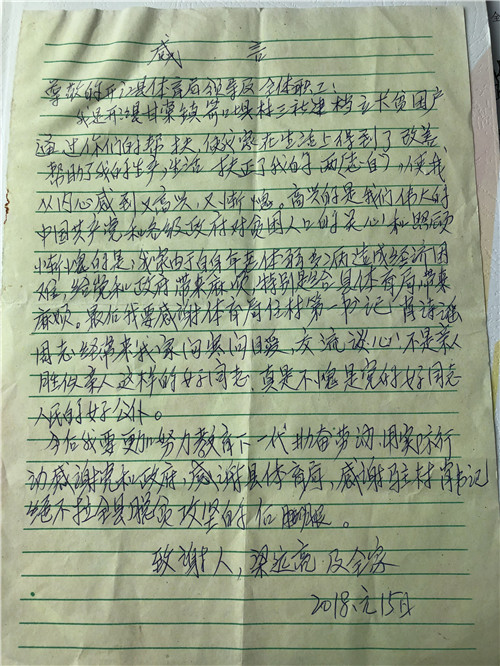 感 言
尊敬的开江县体育局领导及全体职工：
我是开江县甘棠镇寨口垭村三社建档立卡贫困户
通过你们的帮扶，使我家在生活上得到了改善、
帮助了我的生产，生活，扶正了我的两(志自)，使我
从内心感到又高兴，又惭愧。高兴的是我们伟大的
中国共产党和各级政府对贫困人口的关心和照顾
惭愧的是，我家由于自身年老体弱多病造成经济困
难，给党和政府带来麻烦，特别是给县体育局带来
麻烦。最后我要感谢体育局任村第一书记，肖诗
同志经常来我家问寒问暖，交流谈心，不是亲人
胜似亲人这样的好同志，真是不愧是党的好同志
人民的好公仆。
今后我要更加努力教育下一代，勤奋劳动，用实际行
动感谢党和政府，感谢县体育局，感谢驻村肖书记
绝不拉全县脱贫攻坚的后腿。
致谢人，梁远亮及全家
2018.元15日